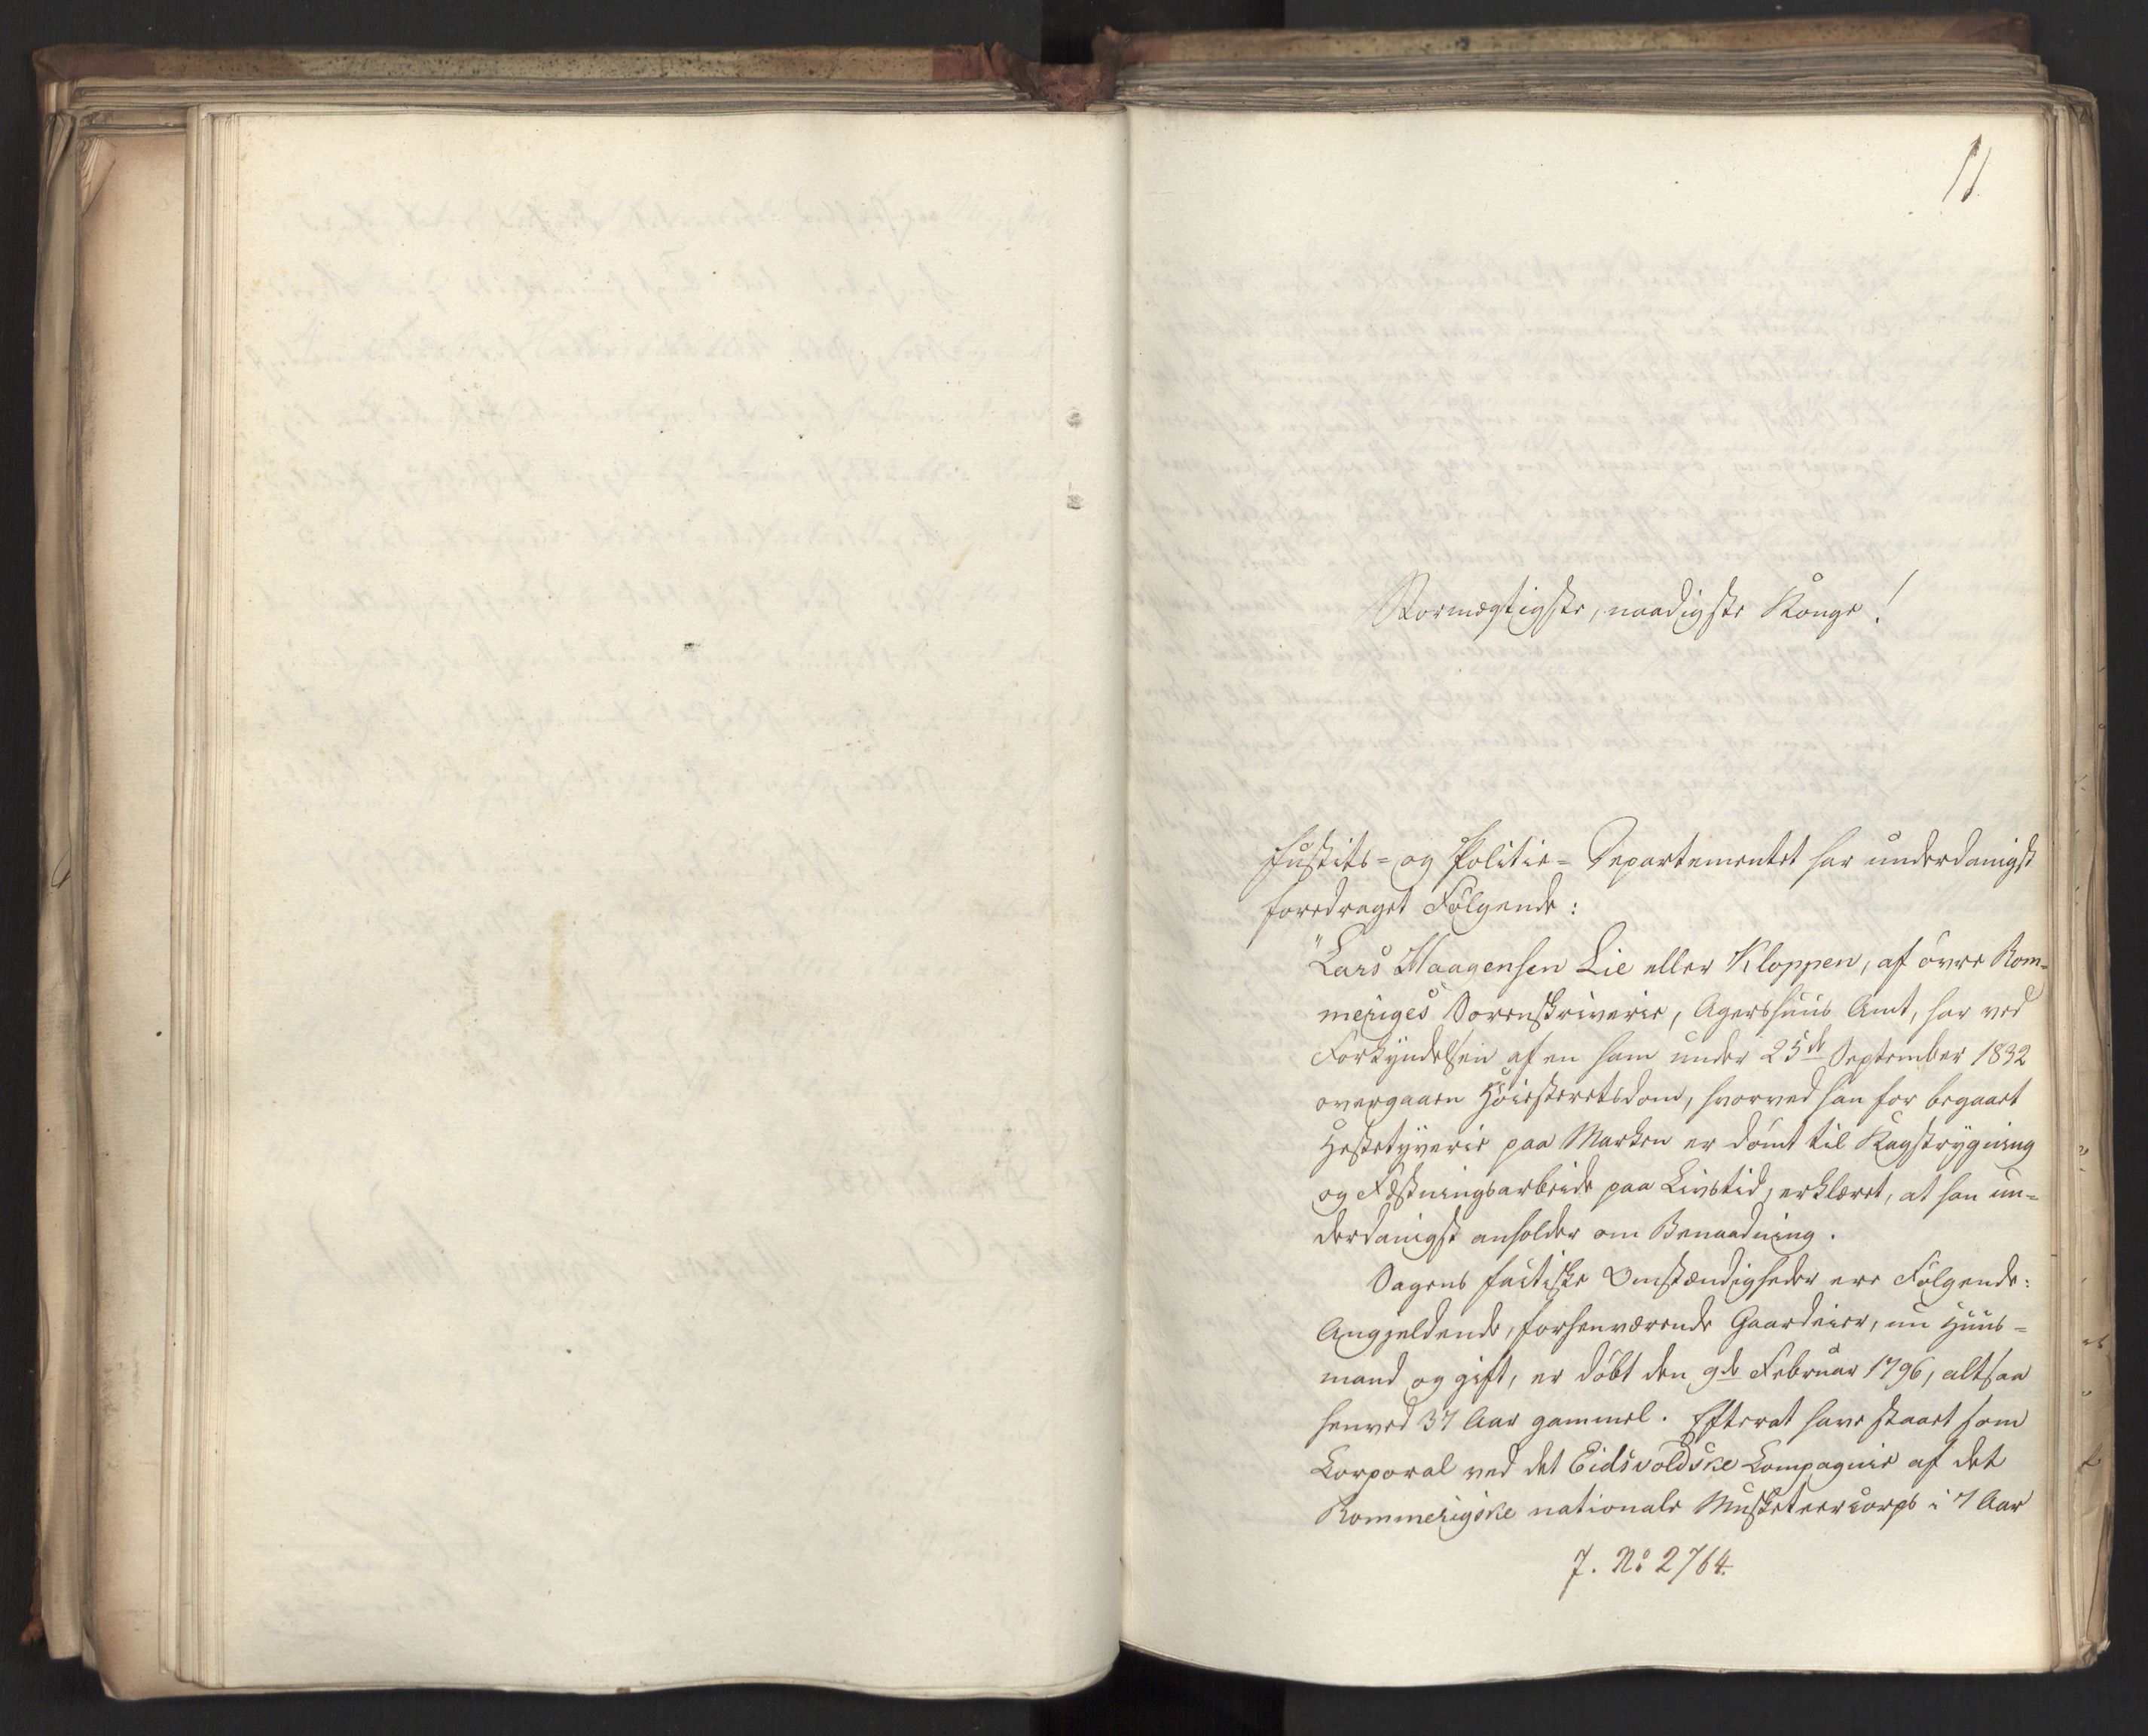 11.
Stormægtigste, naadigste Konge!
Justits- og Politie-Departementet har underdanigst
foredraget Følgende:
"Lars Haagensen Lie eller Kloppen, af øvre Rom-
meriges Sorenskriverie, Agershuus Amt, har ved
Forkyndelsen af en ham under 25de September 1832
overgaaen Høiesteretsdom, hvorved han for begaaet
Hestetyverie paa Marken er dømt til Kagstrygning
og Fæstningsarbeide paa Livstid, erklæret, at han un-
derdanigst anholder om Benaadning.
Sagens factiske Omstændigheder ere Følgende:
Angjeldende, forhenværende Gaardeier, nu Huus-
mand og gift, er døbt den 9de Februar 1796, altsaa
henved 37 Aar gammel. Efterat have staaet som
Corporal ved det Eidsvoldske Compagnie af det
Rommerigske nationale Musketeercorps i 7 Aar
J. No 2764.